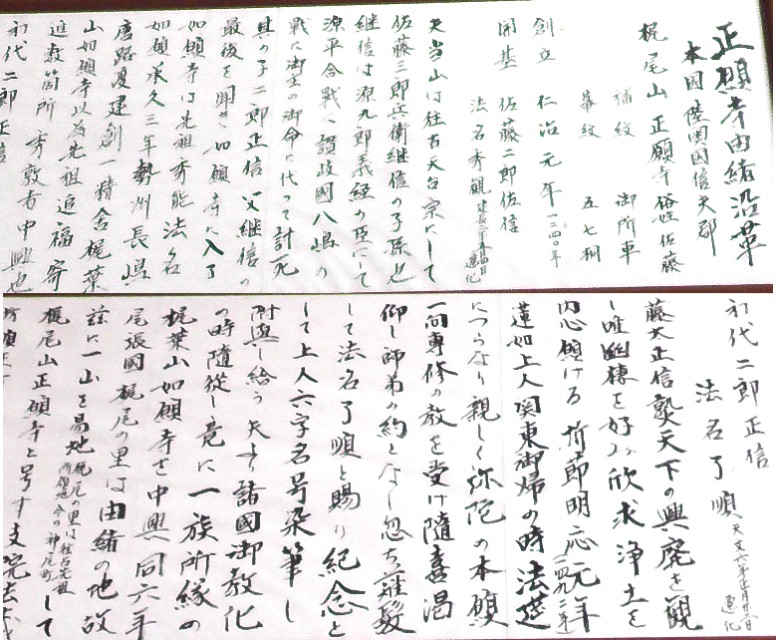 正願寺由緒沿革
本国陸奥国信夫郡
梶尾山 正願寺 俗姓佐藤
諸紋 御所車
幕紋 五七桐
創立 仁治元年 一二四〇年
開基 佐藤二郎佐信
法名秀観 遷化
夫当山は往古天台宗にして
佐藤三郎兵衛継信の子孫也
継信は源九郎義経の臣にて
源平合戦に讃岐国八嶋の
戦に御主の御命に代って討死
其の子二郎正信父継信の
最後を聞き如願寺に入る
如願寺は先祖秀能法名
如願承久三年勢州長嶋
唐路渡建創一精舎梶葉
山如願寺以為先祖追福寄
進数箇所秀敦者中興也
初代二郎正信
初代二郎正信
法名了順 天文六年正月廿二日遷化
藤太正信熟天下の興廃を観
し唯幽棲を好み欣求浄土を
内心傾ける折節明応元年(一四九二年)
蓮如上人関東御帰の時法莚
につらなり親しく弥陀の本願
一向専修の教を受け随喜渇
仰し師弟の約をなし忽ち薙髪
して法名了順と賜り紀念と
して上人六字名号染筆し
附與し給う夫より諸国御教化
の時随従し竟に一族所縁の
梶葉山如願寺を中興同六年
尾張国梶尾の里は由緒の地故
茲に一山を易地 梶尾の里は往古先祖所領地今の神尾町 して
梶尾山正願寺と号す支院法